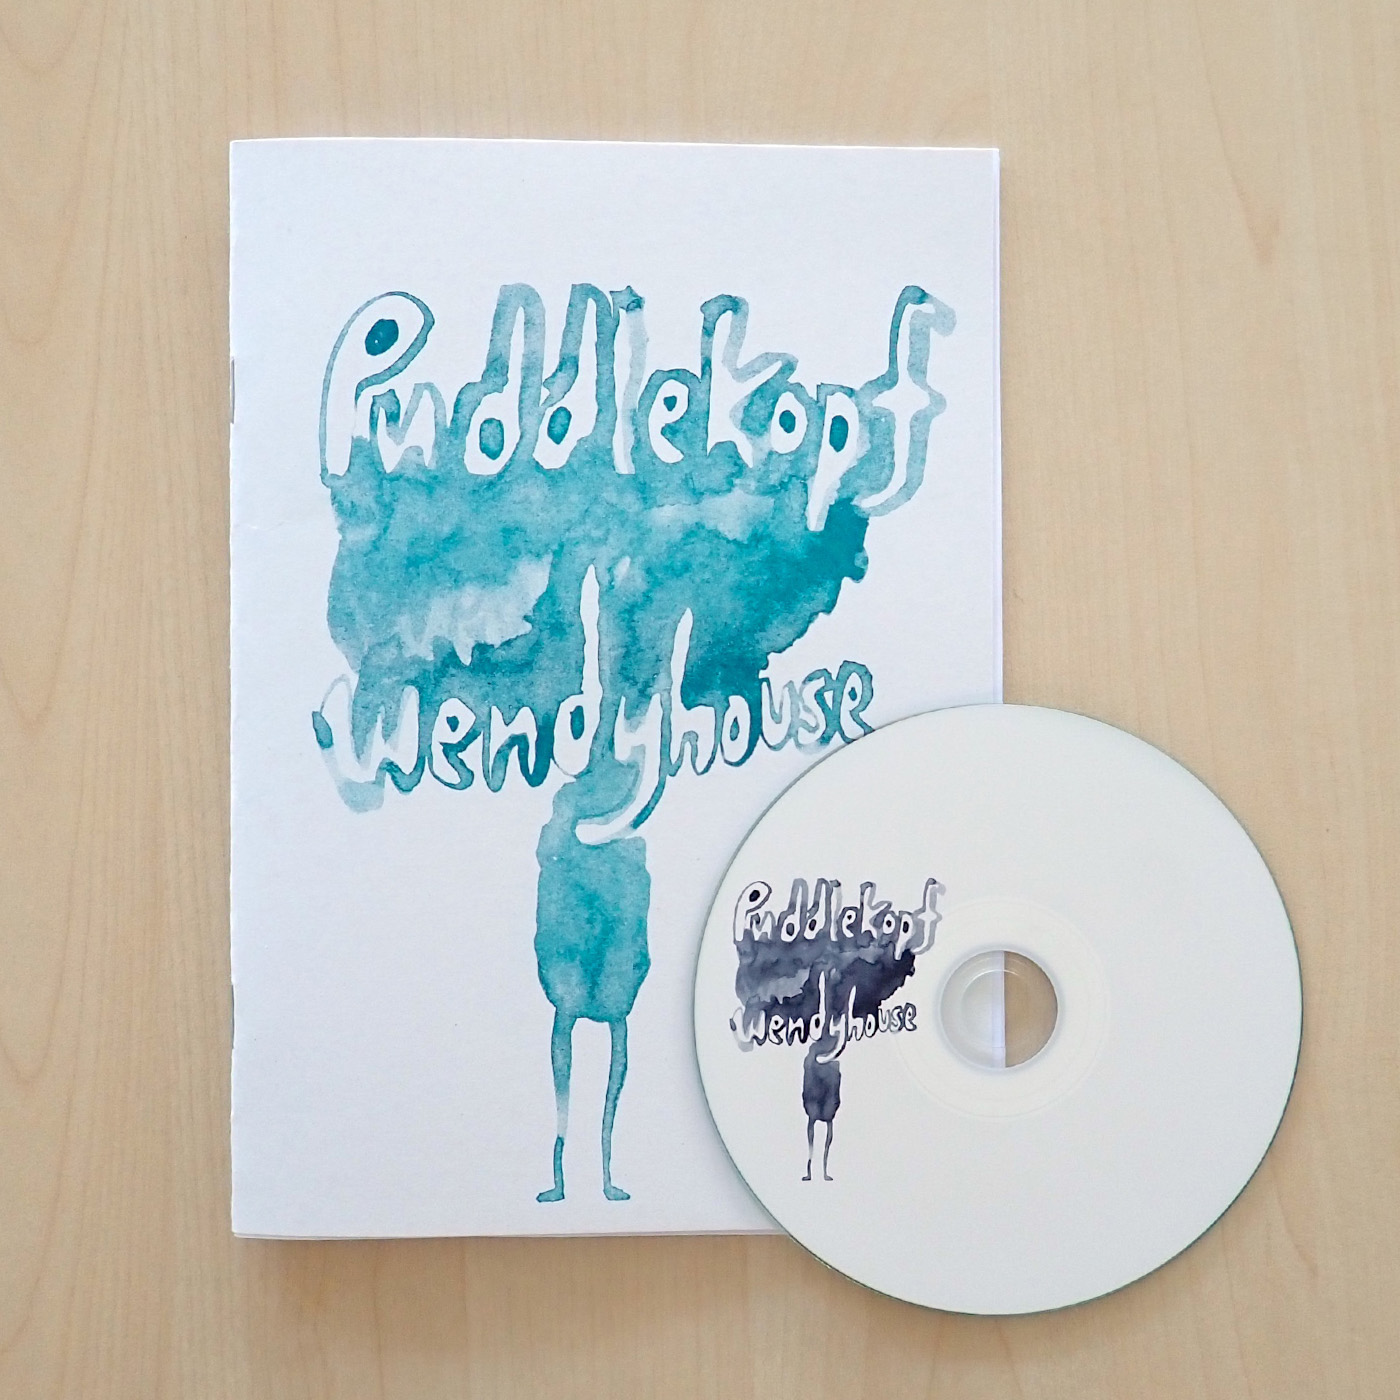 Puddlekopf
wendyhouse
Puddlekopf
wendyhouse